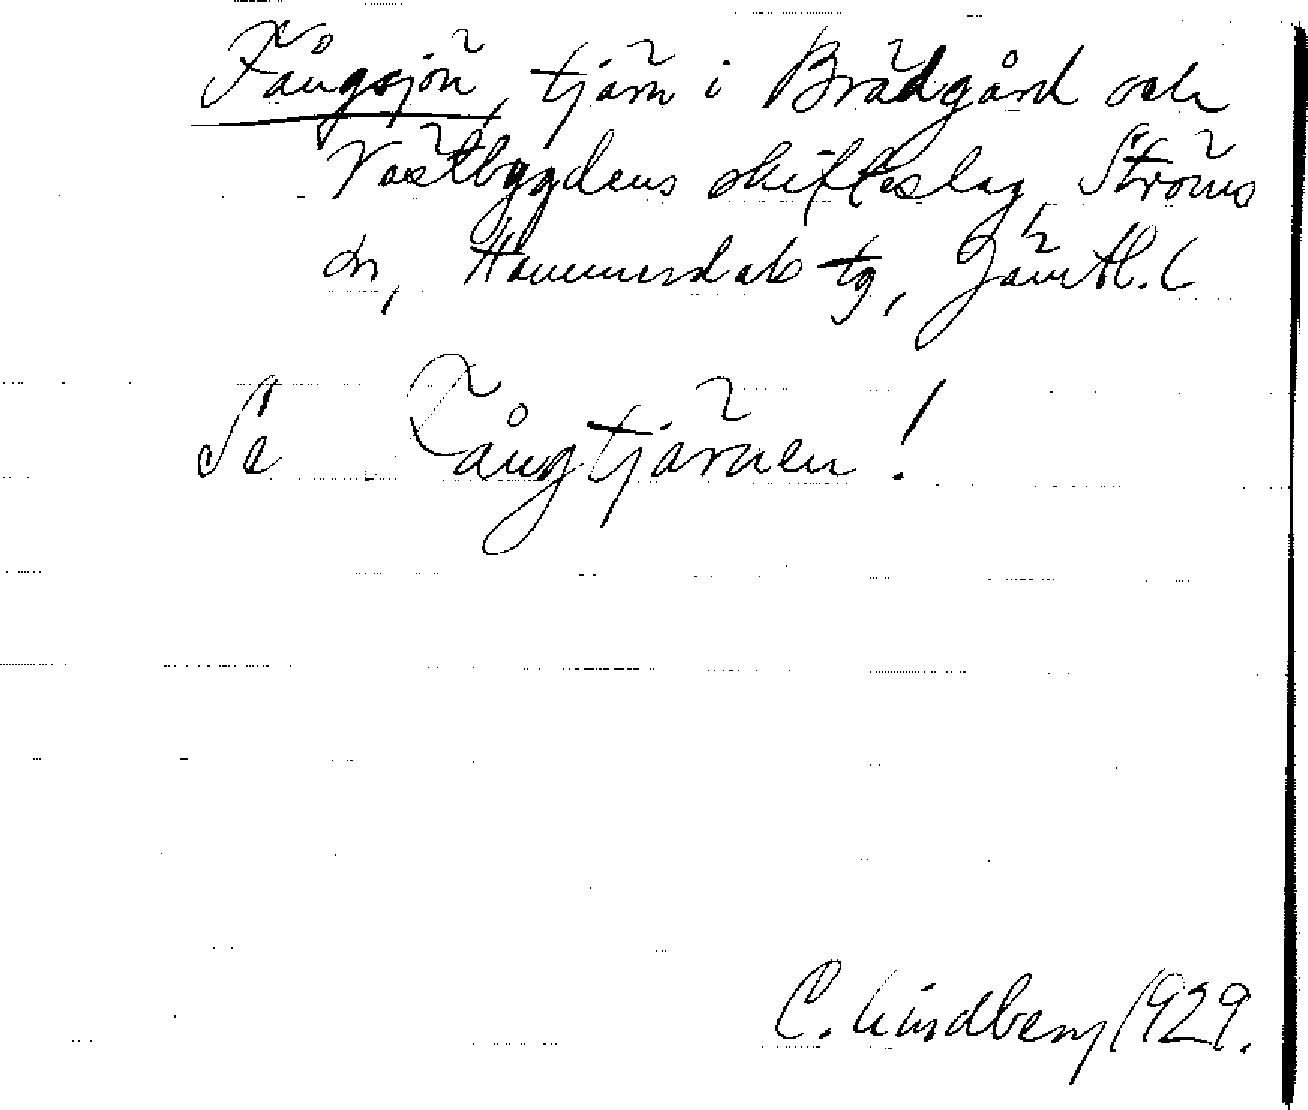 Tångsjön, tjärn i Brädgård och
Västbygdens skifteslag, Ströms
sn, Hammerdals tg, Jämtl. l
Se Tångtjärnen!
C. Lindberg 1929.